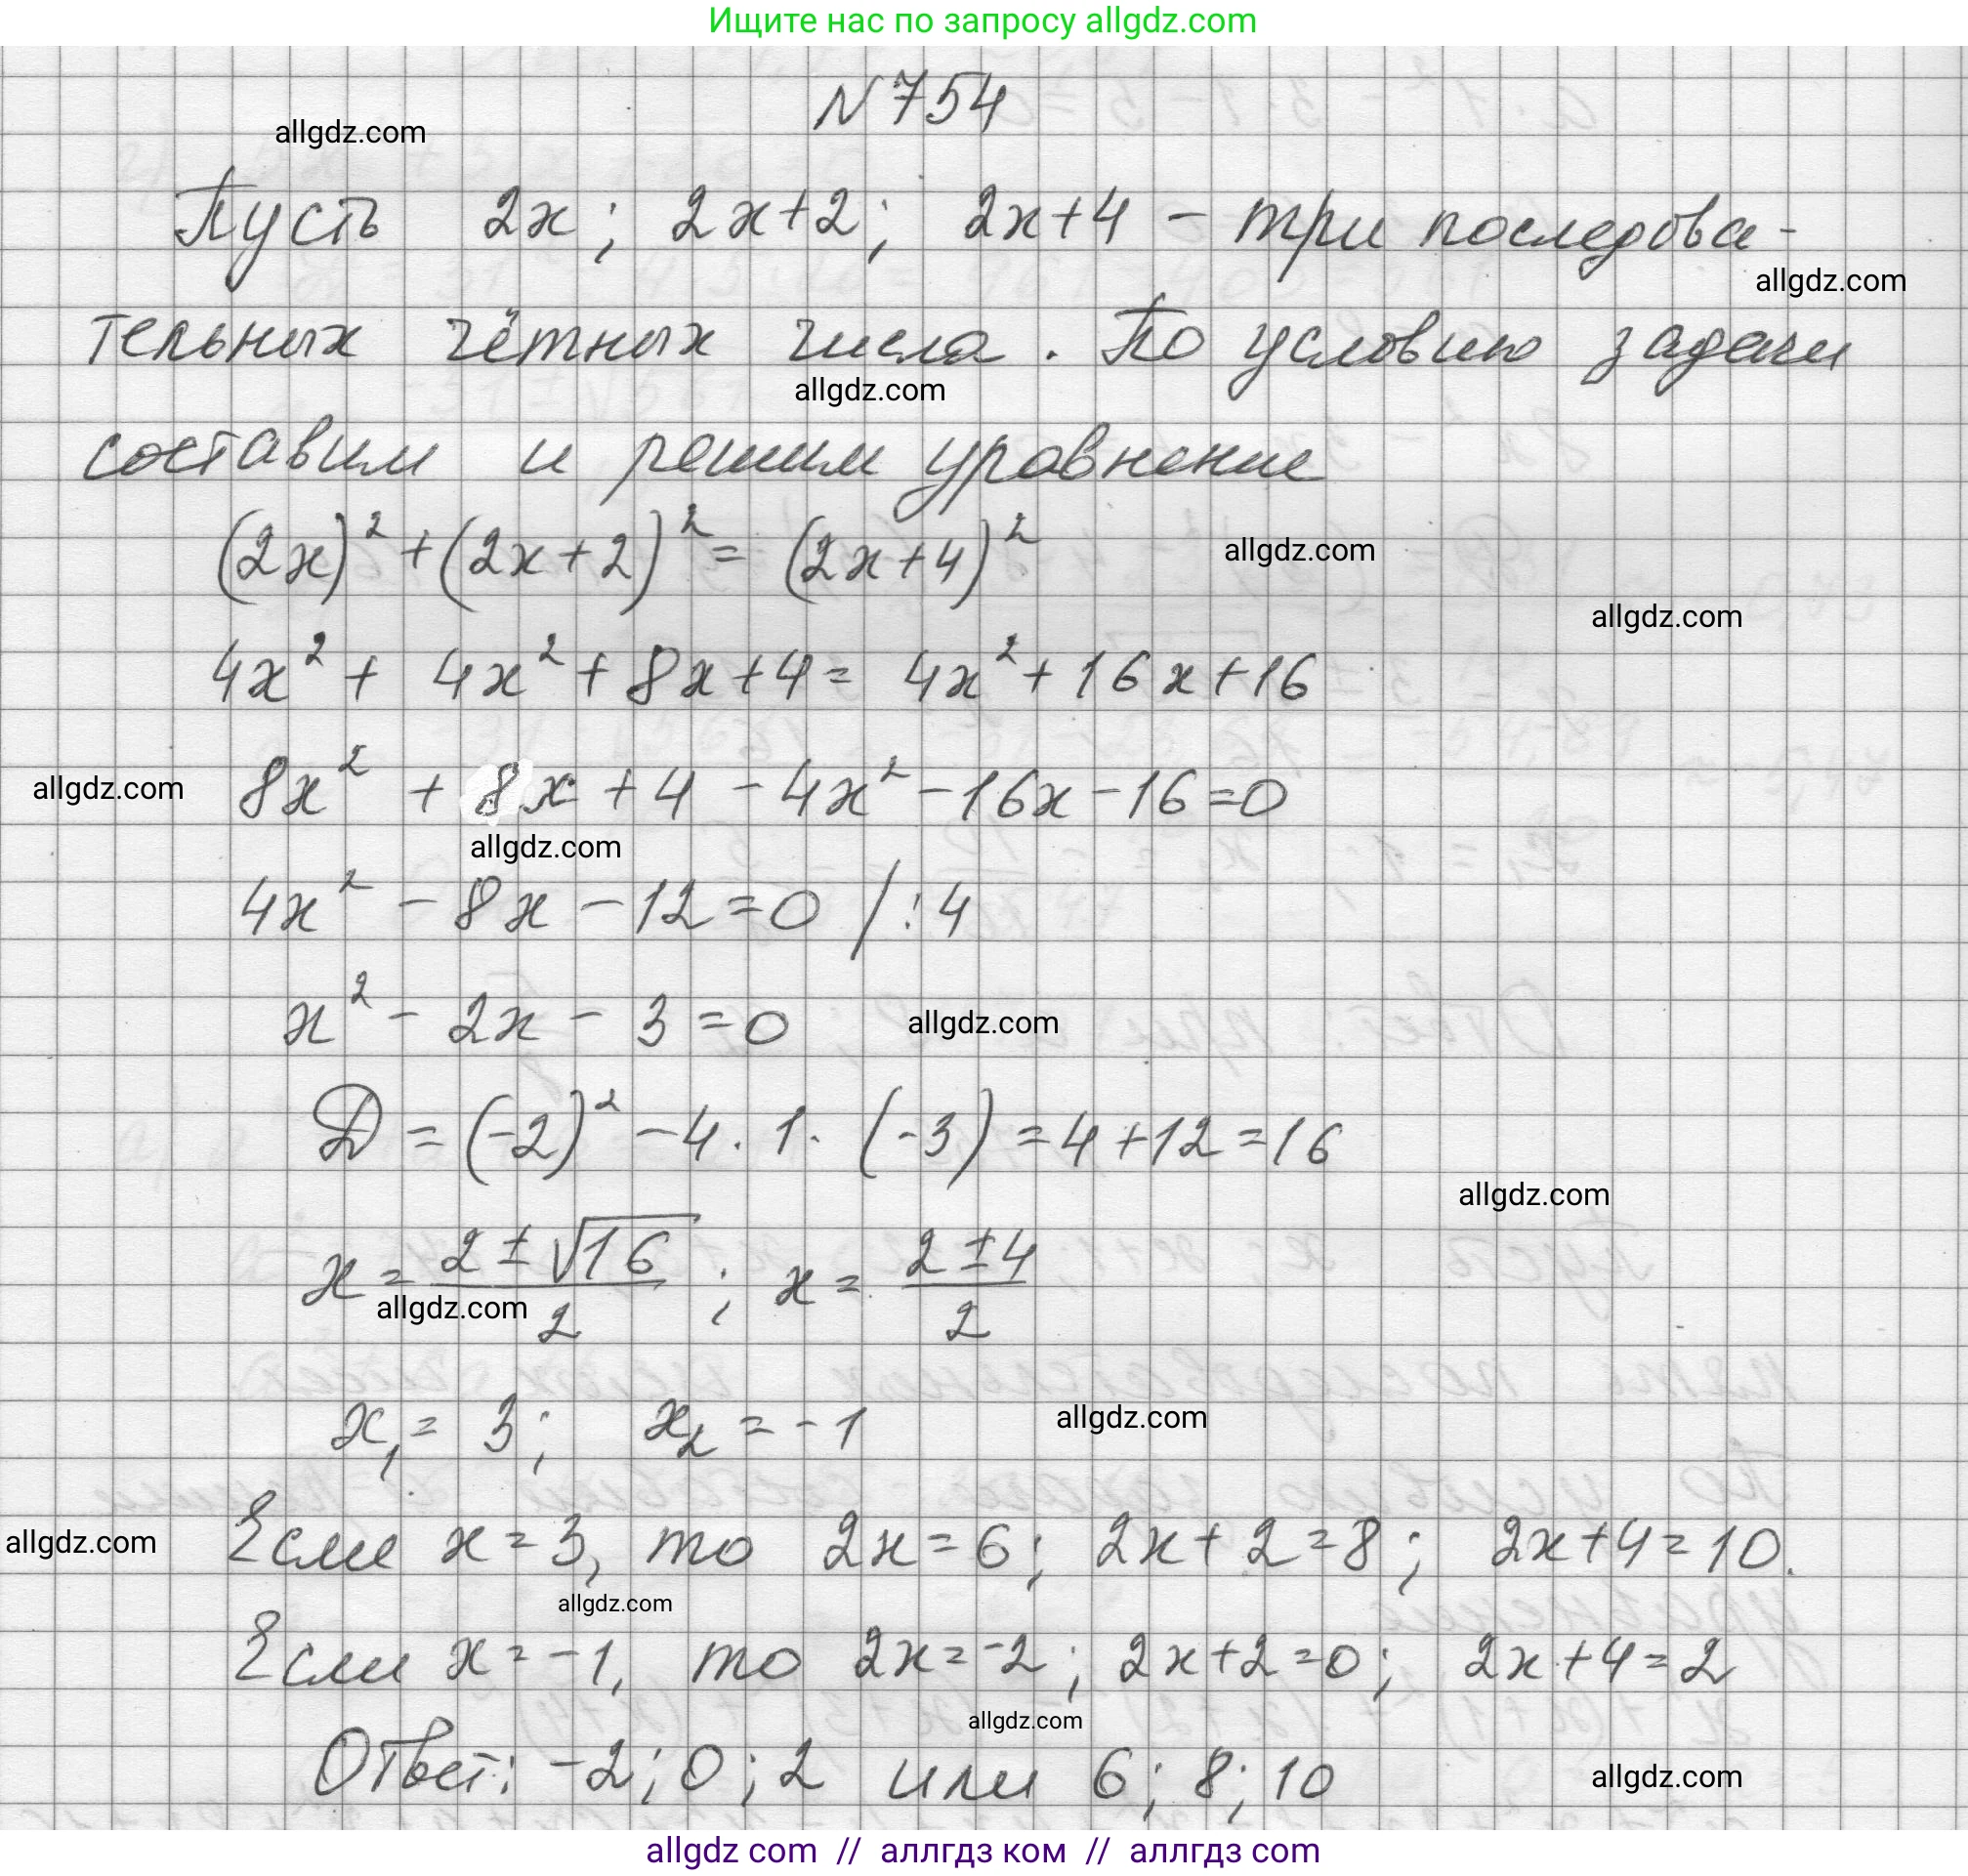 Ищите нас по запросу allgdz.com
N 754
allgdz.com
Пусть 2x; 2x+2; 2x+4 – три последова-
allgdz.com
тельных чётных числа. По условию задачи
allgdz.com
составим и решим уравнение
(2x)² + (2x+2)² = (2x+4)²
allgdz.com
allgdz.com
4x² + 4x² + 8x + 4 = 4x² + 16x + 16
allgdz.com
8x² + 8x + 4 – 4x² – 16x – 16 = 0
allgdz.com
4x² – 8x – 12 = 0 / : 4
x² – 2x – 3 = 0
allgdz.com
D = (-2)² – 4 · 1 · (-3) = 4 + 12 = 16
allgdz.com
x = (2 ± √16)/2 ; x = (2 ± 4)/2
allgdz.com
x₁ = 3; x₂ = -1
allgdz.com
allgdz.com
Если x = 3, то 2x = 6; 2x + 2 = 8; 2x + 4 = 10.
allgdz.com
Если x = -1, то 2x = -2; 2x + 2 = 0; 2x + 4 = 2
allgdz.com
Ответ: -2; 0; 2 или 6; 8; 10
allgdz.com
allgdz com // аллгдз ком // аллгдз com